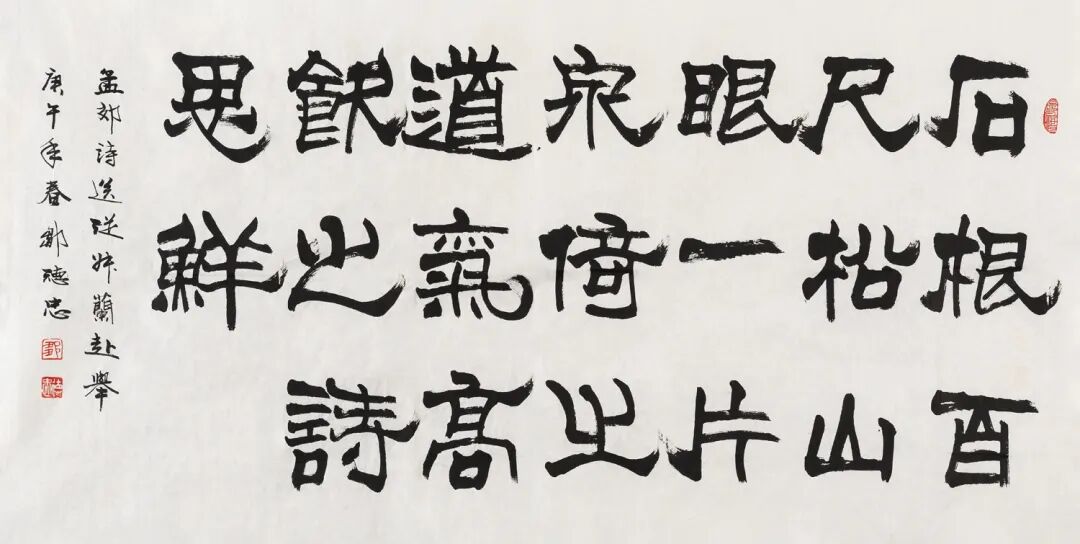 石根百
尺松山
眼一片
泉倚之
道氣高
飲之詩
思鮮
孟郊詩送從蘭赴舉
庚午年春鄒德忠